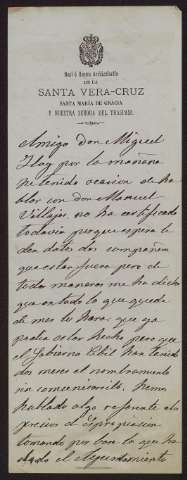 Real é Ilustre Archicofradía
DE LA
SANTA VERA-CRUZ
SANTA MARÍA DE GRACIA
Y NUESTRA SEÑORA DEL TRASPASO
Amigo Don Miguel
Hoy por la mañana
he tenido ocasion de ha
blar con don Manuel
Villajos no ha certificado
todavia porque espera le
den datos dos compañeros
que estan fuera pero de
todas maneras me ha dicho
que en todo lo que queda
de mes lo hara; que ya
podia estar hecho pero que
el Gobierno Civil han tenido
dos meses el nombramiento
sin comunicarselo. Hemos
hablado algo referente al
precio de expropiacion
tomando por base lo que ha
dado el Ayuntamiento